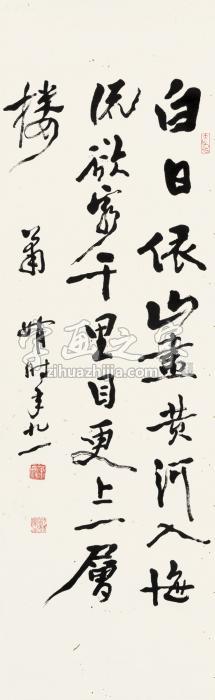 白日依山尽黄河入海
流欲穷千里目更上一层
楼
萧娴时年九一
字画之家
zihuazhijia.com